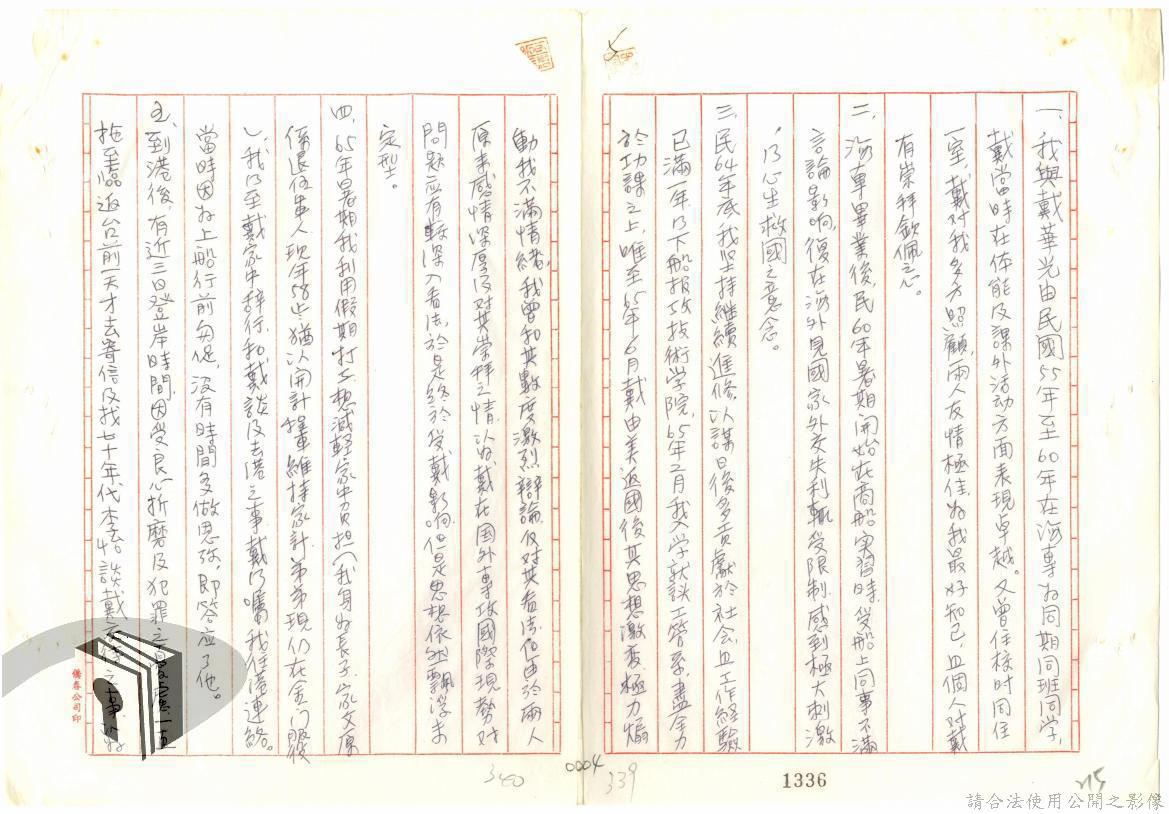 一、我與戴華光由民國55年至60年在海專为同期同班同学,
戴當時在体能及課外活动方面表現卓越。又曾住校时同住
一室,戴对我多方照顧,兩人友情極佳,为我最好知己,且個人对戴
有崇拜欽佩之心。
二、海專畢業後,民60年暑期開始在商船实習時,受船上同事不滿
言論影响,復在海外見國家外交失利輒受限制,感到極大刺激
,乃心生救國之意念。
三、民64年底我坚持継續進修,以謀日後多貢獻於社会,且工作経驗
已滿一年,乃下船报攷技術学院,65年2月我入学就談工管系,盡全力
於功課之上,唯至65年6月戴由美返國後其思想激变,極力煽
動我不滿情緒,我曾和其數度激烈辯論,反对其看法,但由於兩人
原来感情深厚及对其崇拜之情,以为戴在国外專攻國際現勢对
問題应有較深入看法,於是終於受戴影响。但是思想依然飄浮未
定型。
四、65年暑期我利用假期打工,想減軽家中負担(我身为長子,家父原
係退伍軍人,現年58歲猶以開計程車維持家計,弟弟現仍在金门服
),我乃至戴家中辞行,和戴談及去港之事,戴乃囑我往港連絡。
當時因为上船行前匆促,沒有時間多做思攷,即答应了他。
五、到港後,有近三日登岸時間,因受良心折磨及犯罪之憂慮一直
拖至臨返台前一天才去寄信及找七十年代李怡談戴
儒春公司印
340
0004
339
1336
215
請合法使用公開之影像